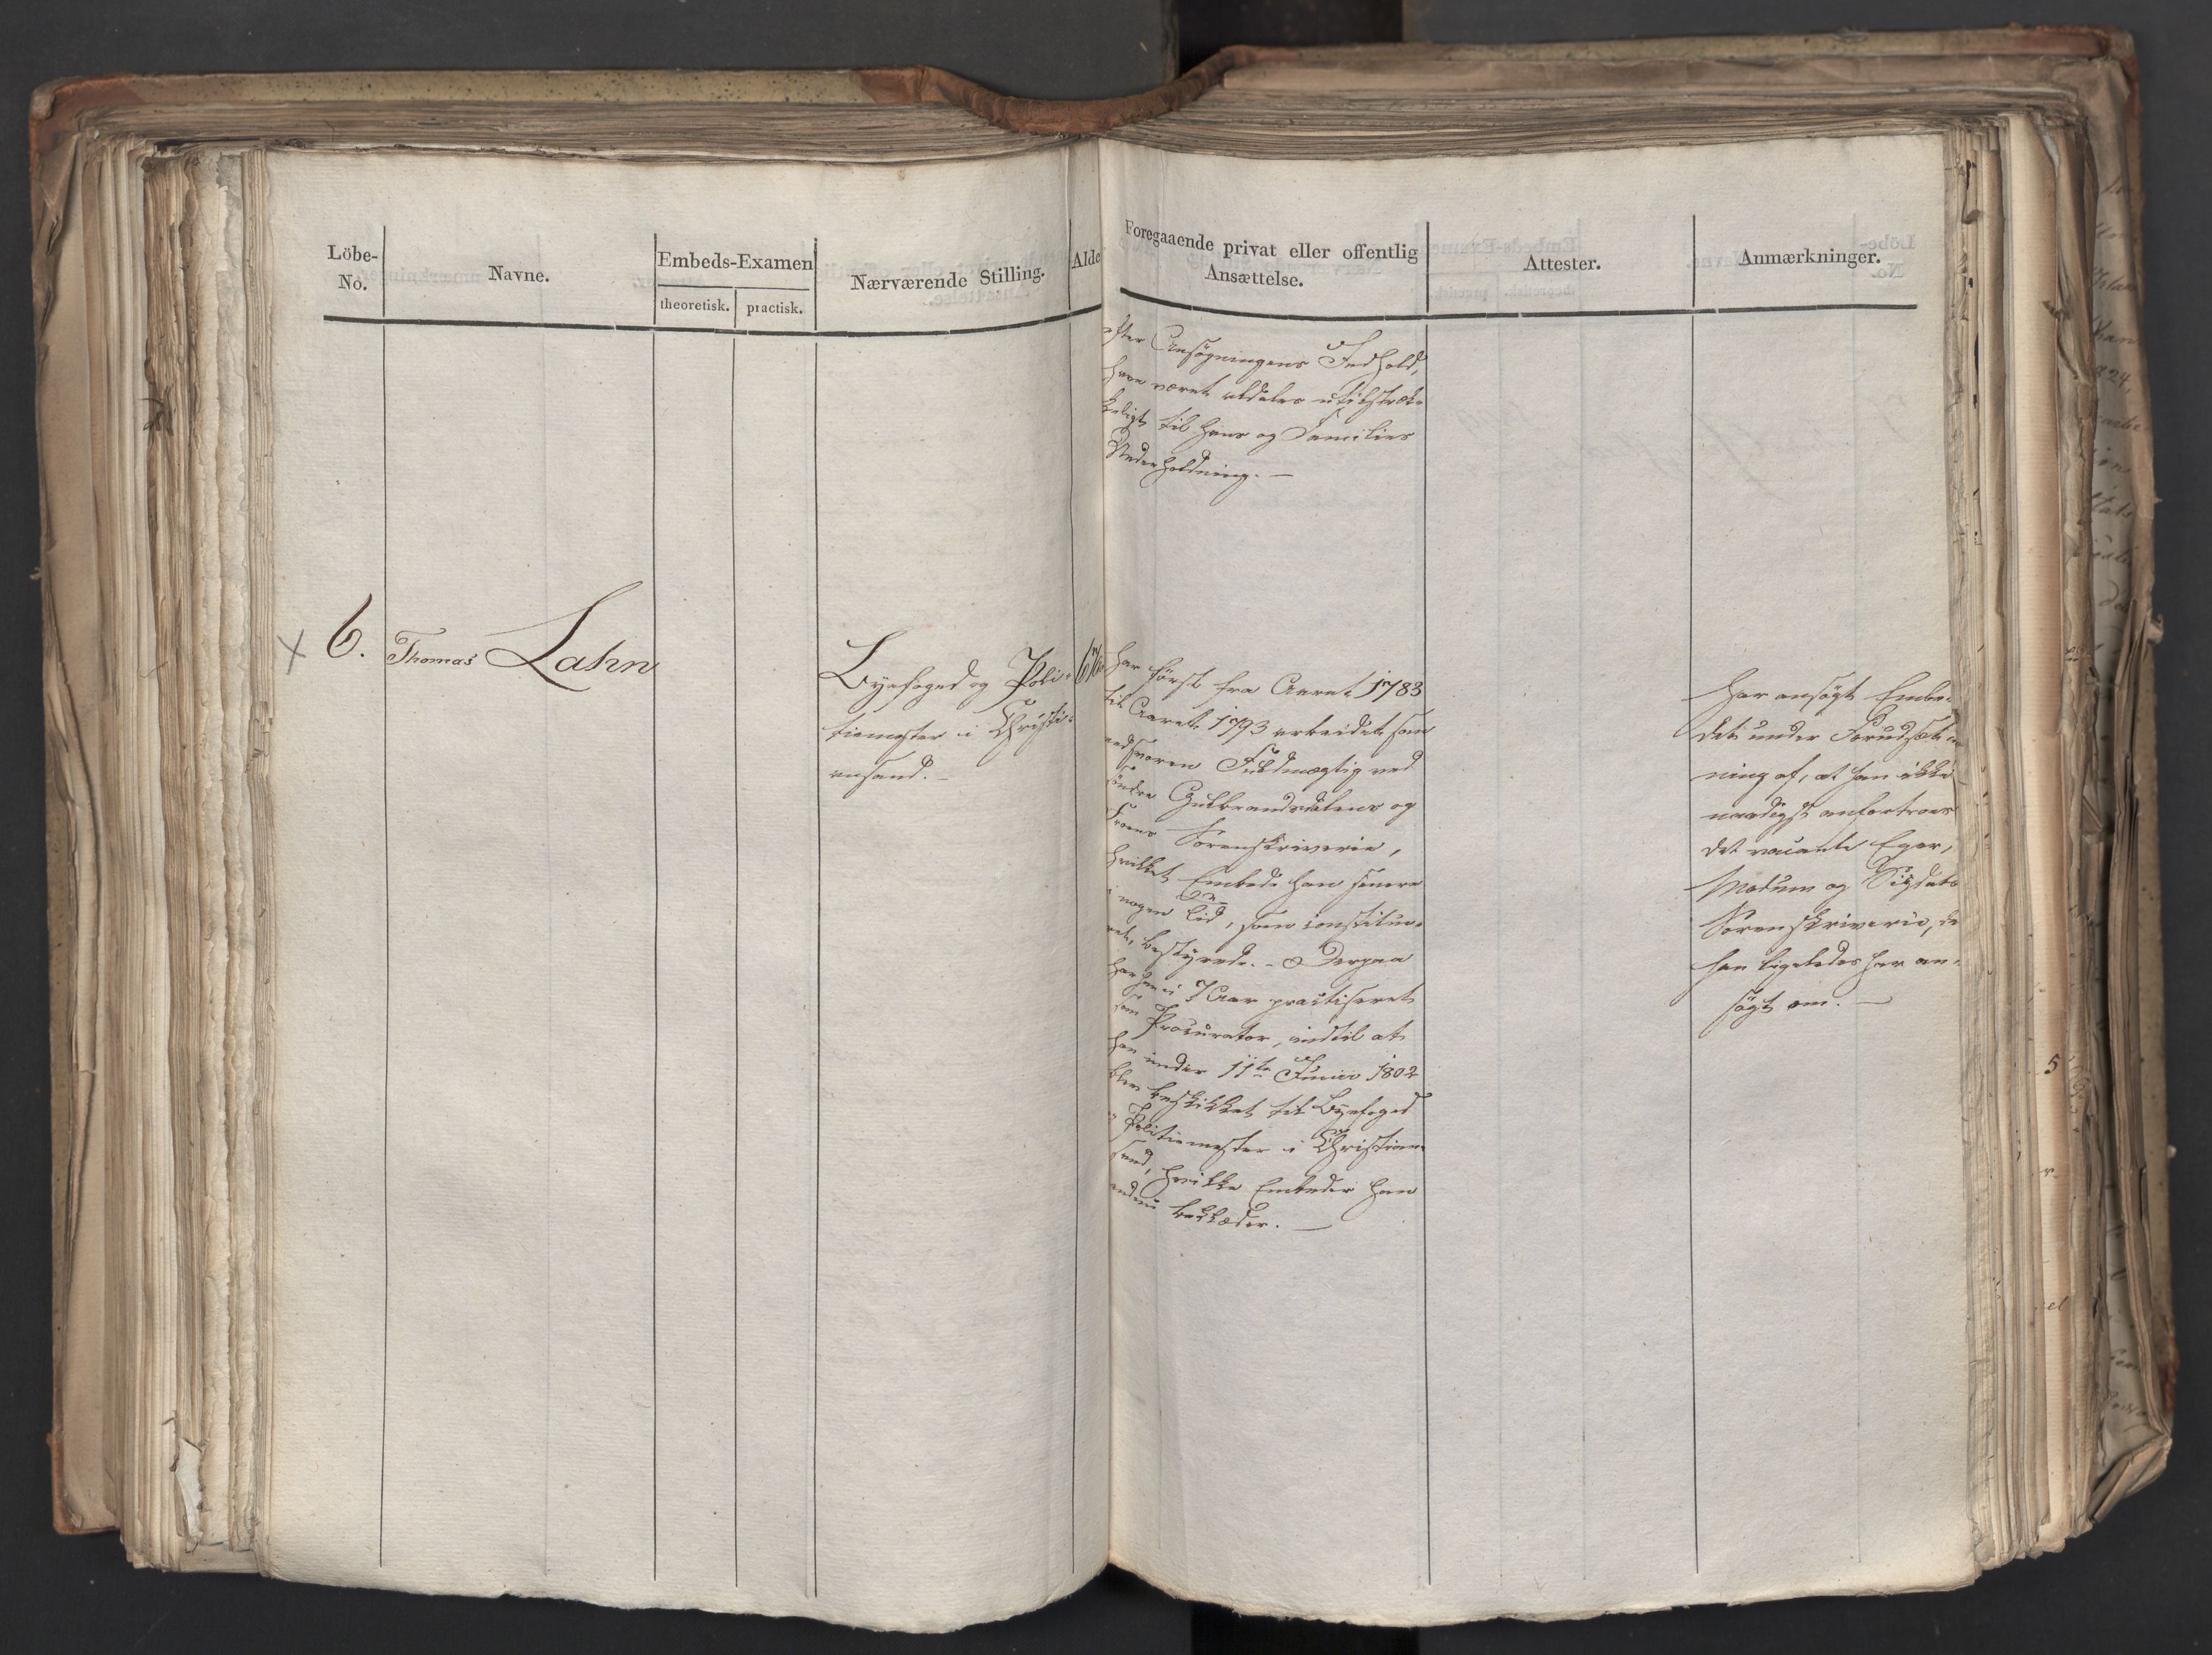 Löbe-
No.
Navne.
Embeds-Examen
theoretisk. practisk.
Nærværende Stilling.
Alde
Foregaaende privat eller offentlig
Ansættelse.
Attester.
Anmærkninger.
efter Ansøgningens Indhold,
have været aldeles utilstræk-
keligt til hans og Families
Underholdning. —
6. Thomas Lahn
Byefoged og Poli-
tiemester i Christi-
ansand. —
har først fra Aaret 1783
til Aaret 1793 arbeidet som
edsvoren Fuldmægtig ved
søndre Guldbrandsdalens og
Froens Sorenskriverie,
hvilket Embede han senere
i nogen Tid, som constitue-
ret, bestyrede. - Derpaa
har han i 7 Aar practiseret
som Procurator, indtil at
han under 11te Junii 1802
blev beskikket til Byefoged
og Politiemester i Christian-
sand, hvilke Embeder han
endnu beklæder. —
har ansøgt Embe-
det under Forudsæt-
ning af, at han ikke
naadigst anfortroes
det vacante Eger,
Modum og Sigdals
Sorenskriverie, de
han ligeledes har an-
søgt om. —